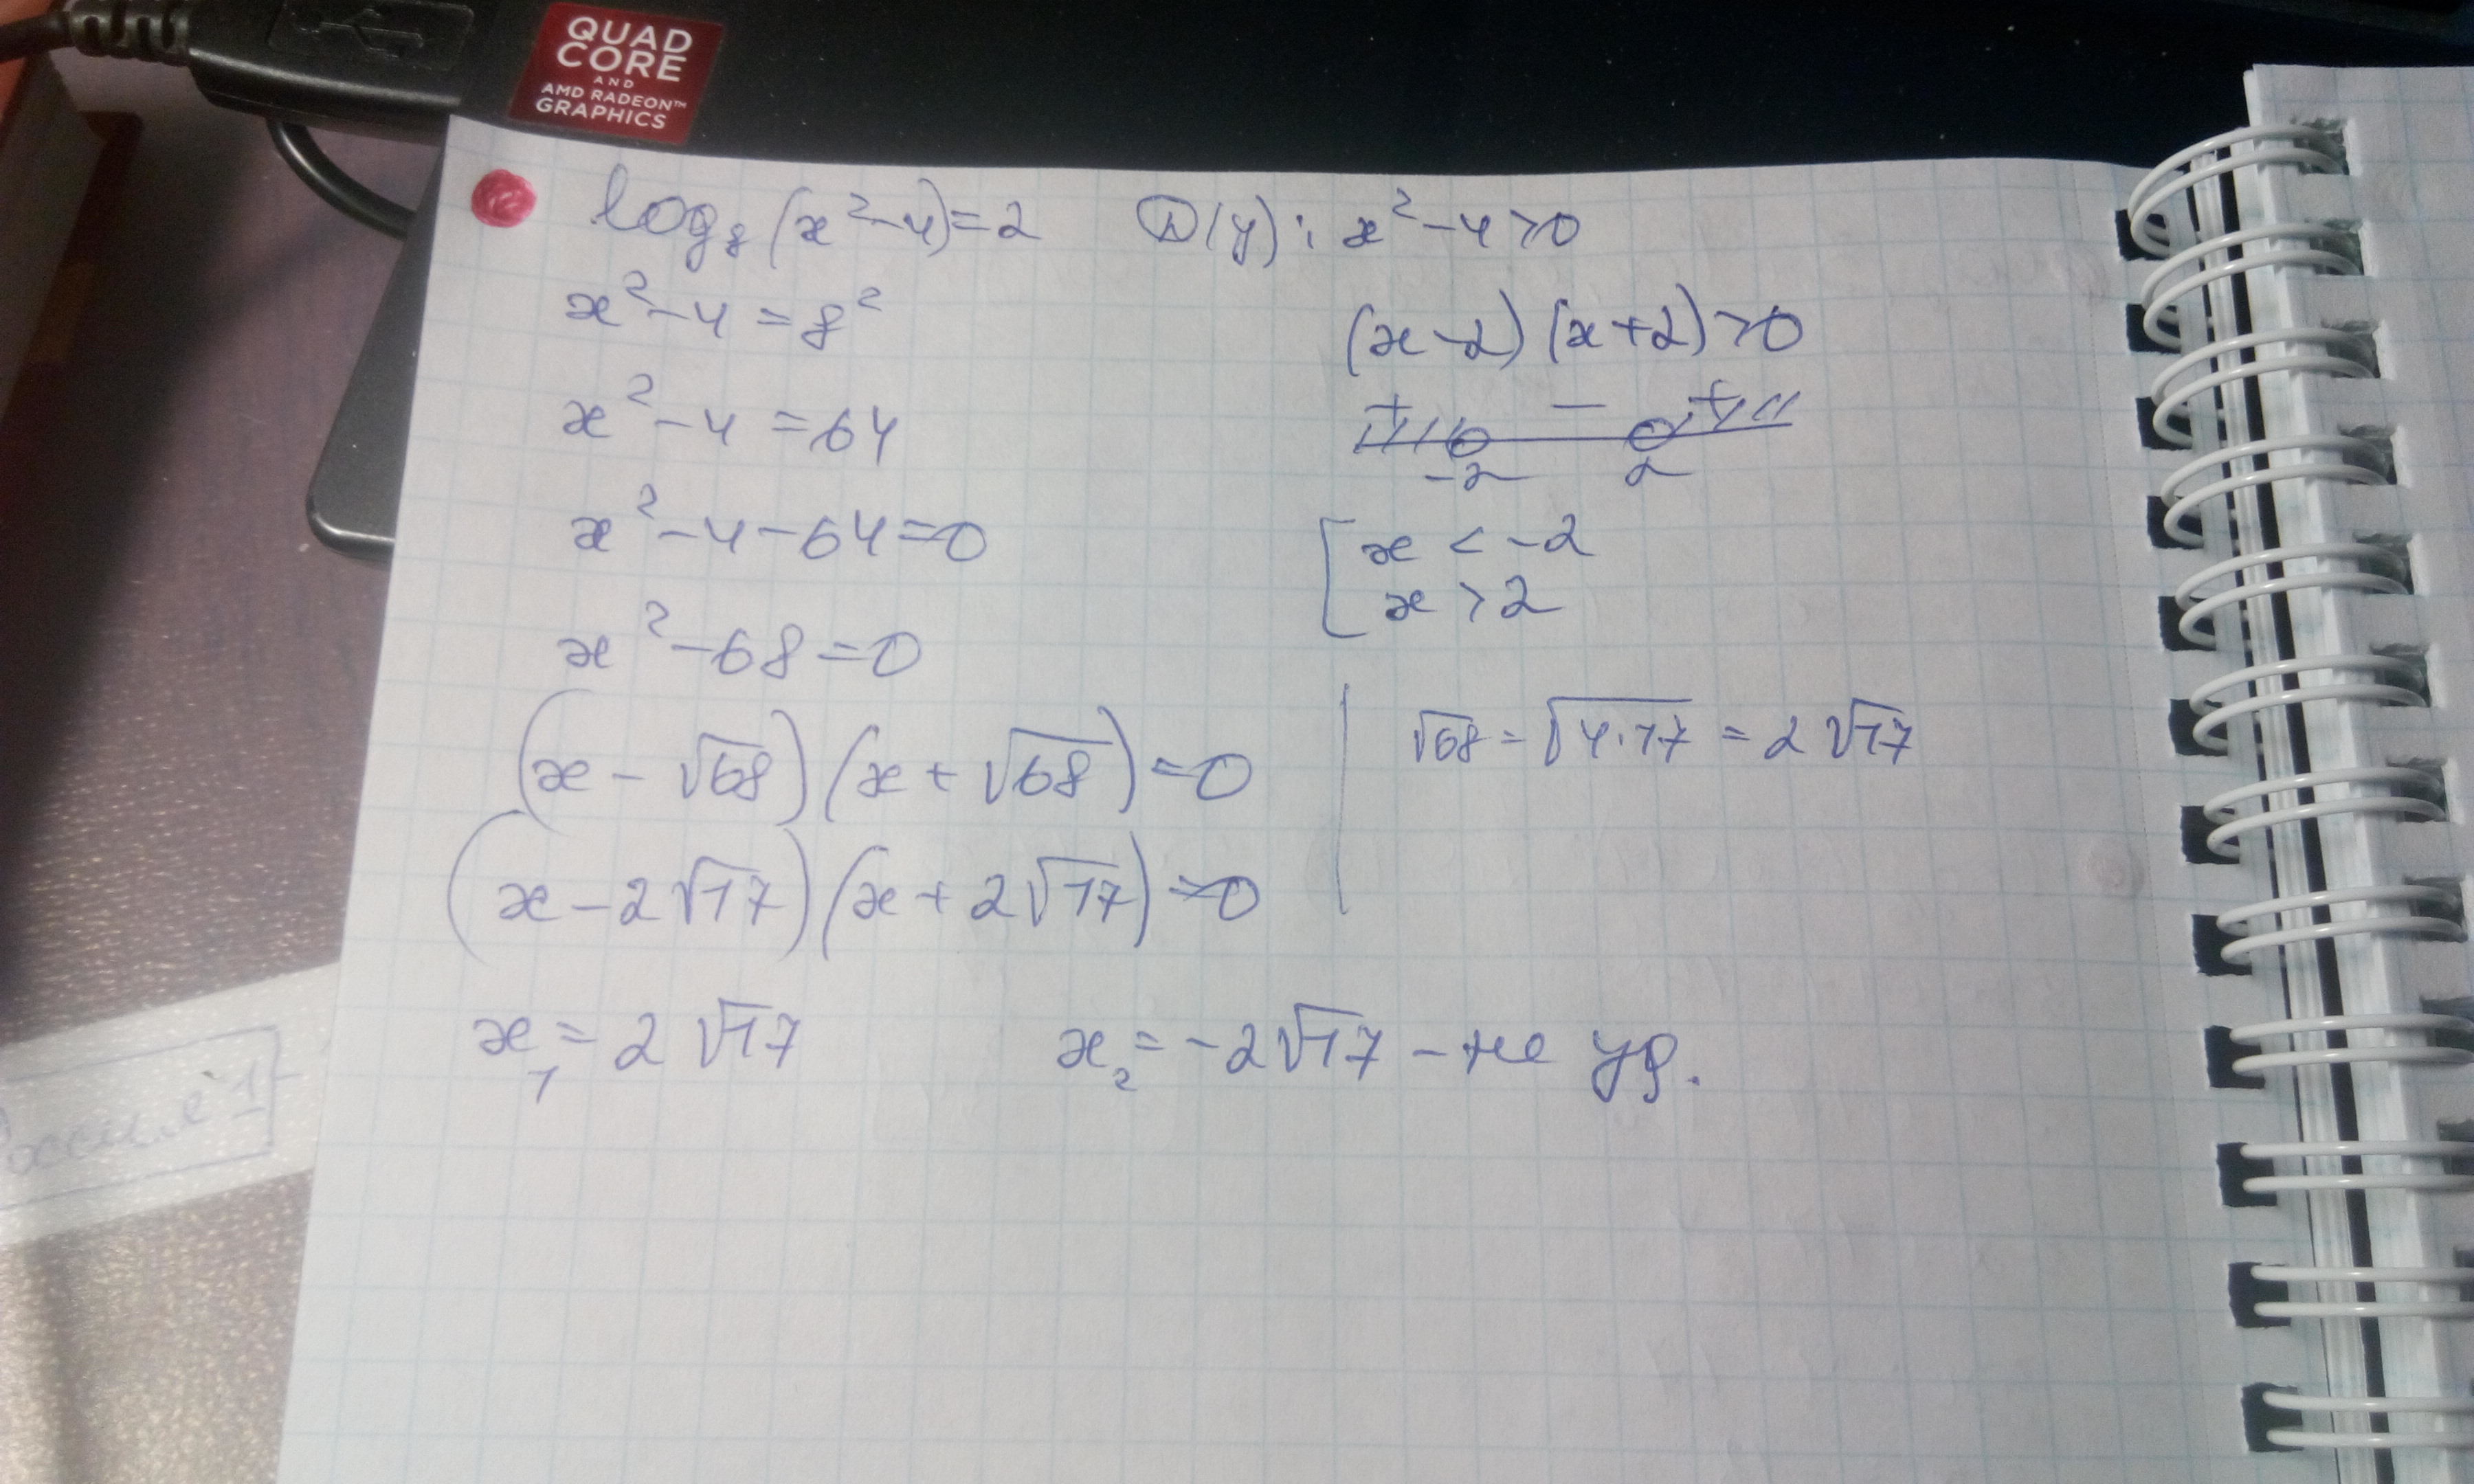 QUAD
CORE
AND
AMD RADEON™
GRAPHICS
log₈(x²-4)=2 D(y): x²-4>0
x²-4=8²
(x-2)(x+2)>0
x²-4=64
+ - +
-2 2
x²-4-64=0
x<-2
x>2
x²-68=0
(x-√68)(x+√68)=0
√68=√4·17=2√17
(x-2√17)(x+2√17)=0
x₁=2√17 x₂=-2√17 - не уд.